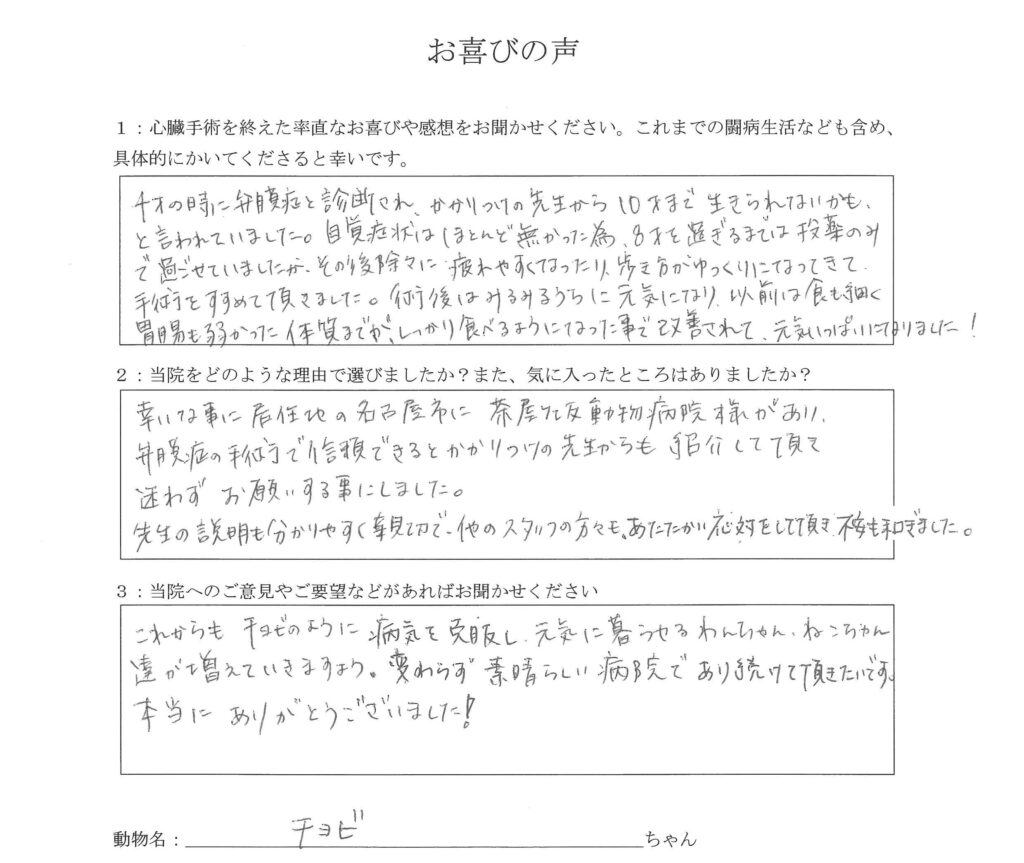 お喜びの声
1：心臓手術を終えた率直なお喜びや感想をお聞かせください。これまでの闘病生活なども含め、
具体的にかいてくださると幸いです。
4才の時に弁膜症と診断され、かかりつけの先生から10才まで生きられないかも、
と言われていました。自覚症状はほとんど無かった為、8才を過ぎるまでは投薬のみ
で過ごせていましたが、その後除々に疲れやすくなったり、歩き方がゆっくりになってきて、
手術をすすめて頂きました。術後はみるみるうちに元気になり、以前は食も細く
胃腸も弱かった体質までが、しっかり食べるようになった事で改善されて、元気いっぱいになりました！
2：当院をどのような理由で選びましたか？また、気に入ったところはありましたか？
幸いな事に居住地の名古屋市に茶屋ヶ坂動物病院様があり、
弁膜症の手術で信頼できるとかかりつけの先生からも紹介して頂て
迷わずお願いする事にしました。
先生の説明も分かりやすく親切で、他のスタッフの方々も、あたたかい応対をして頂き不安も和ぎました。
3：当院へのご意見やご要望などがあればお聞かせください
これからもチョビのように病気を克服し、元気に暮らせるわんちゃん、ねこちゃん
達が増えていきますよう。変わらず素晴らしい病院であり続けて頂きたいです。
本当にありがとうございました！
動物名：チョビちゃん